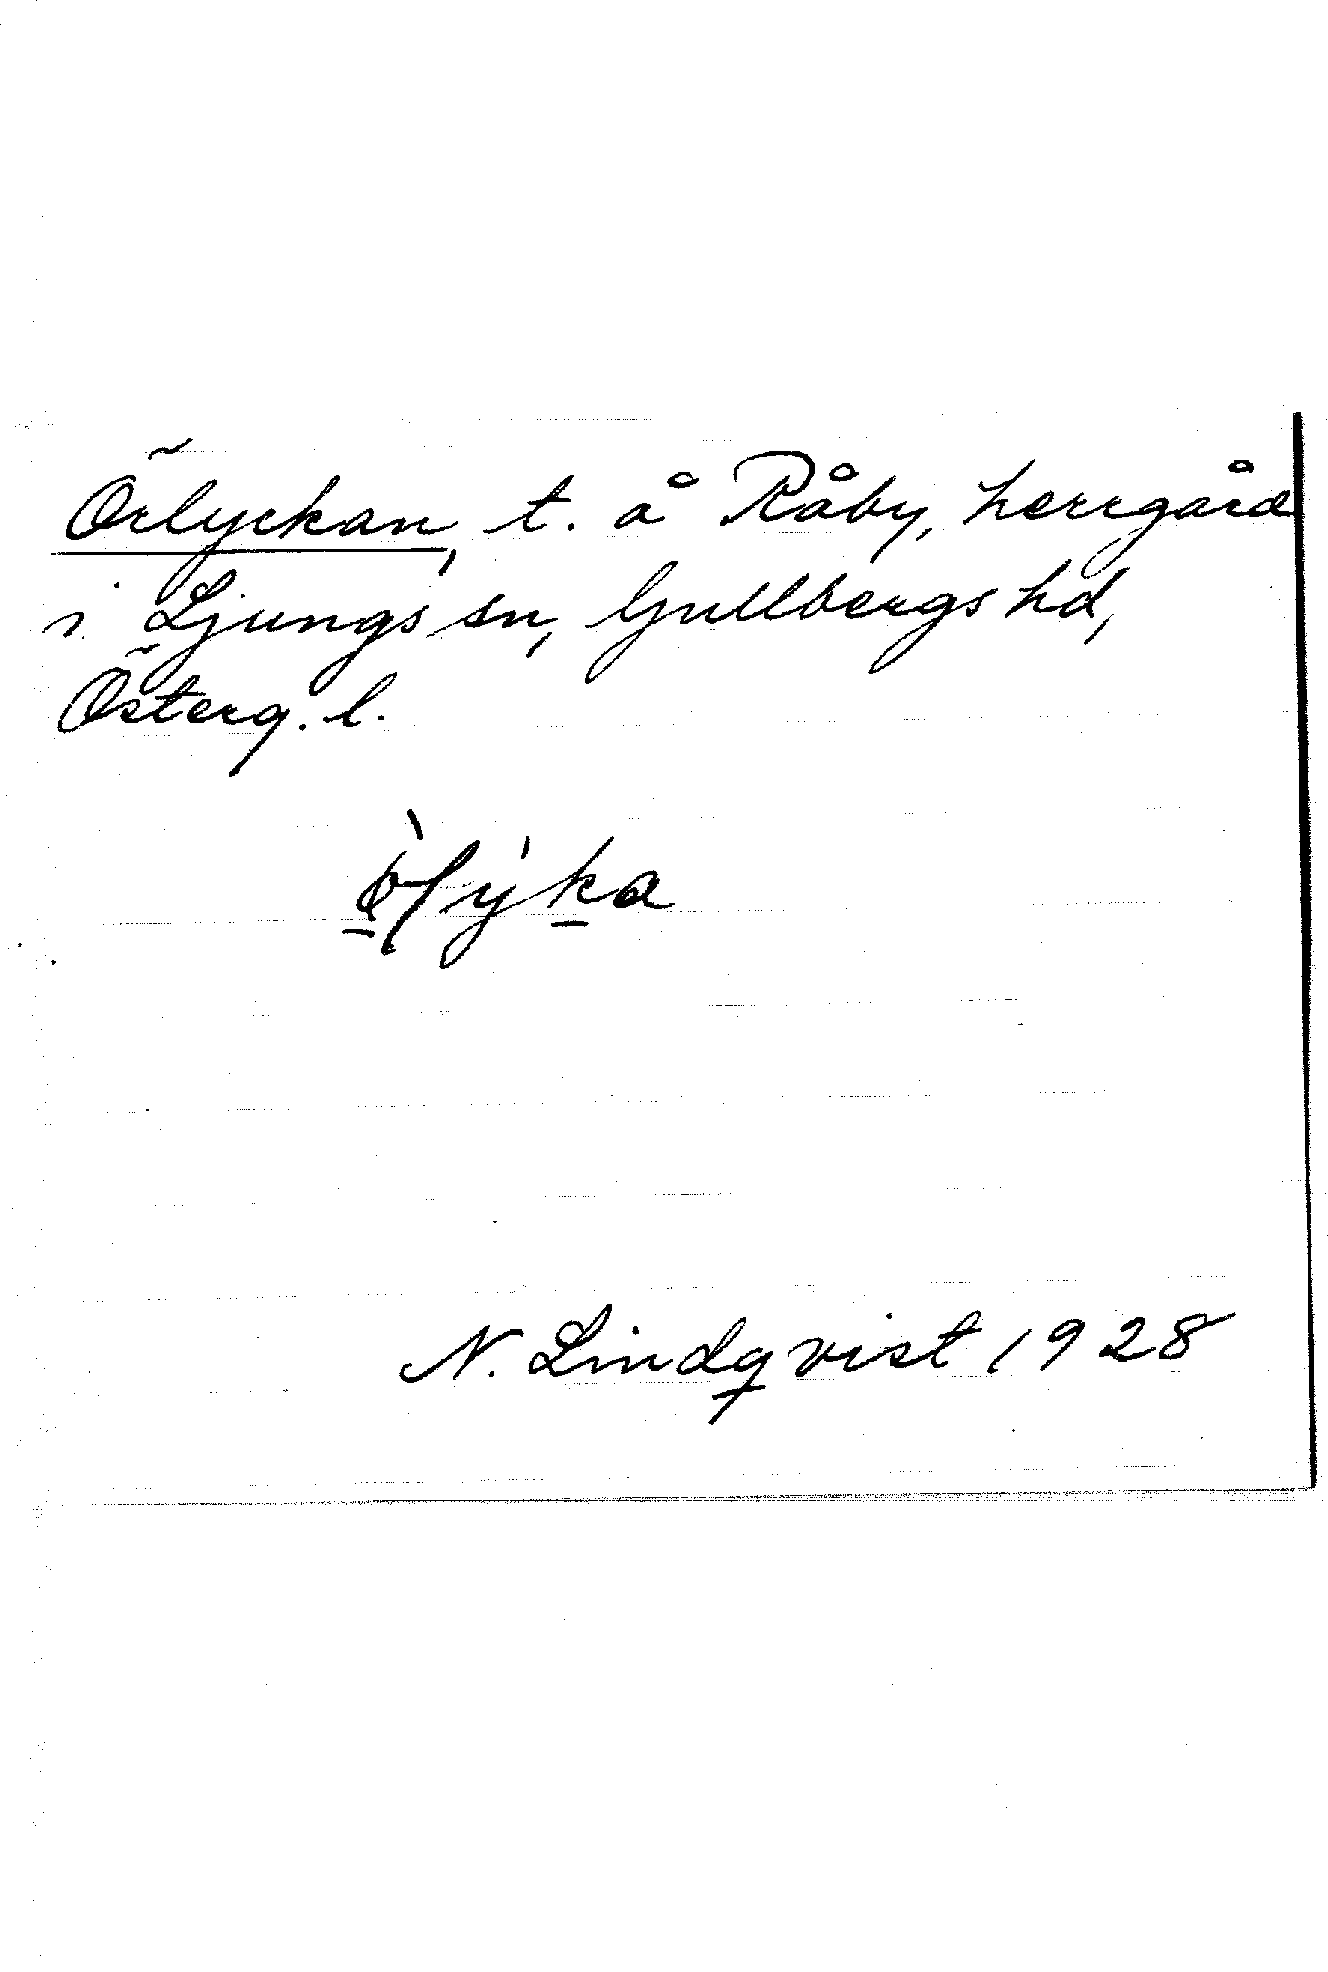 Örlyckan, t. å Råby, herrgård
i Ljungs sn, Gullbergs hd,
Österg. l.
N. Lindqvist 1928